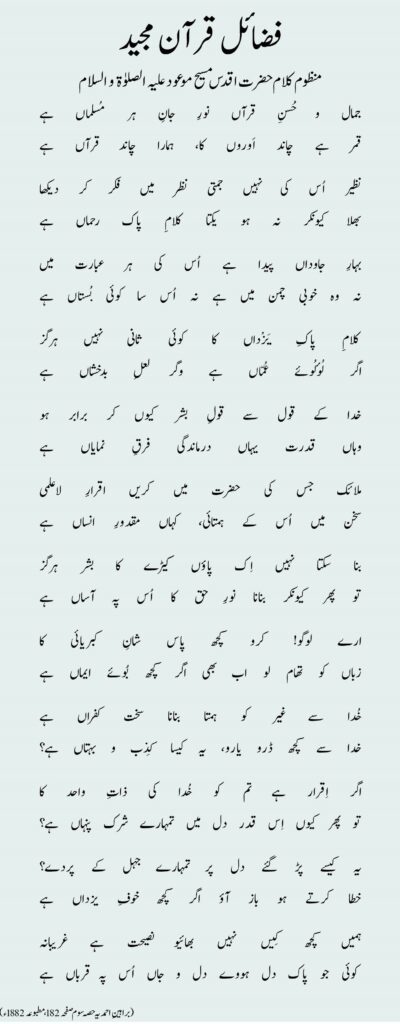 فضائل قرآن مجید
منظوم کلام حضرت اقدس مسیح موعود علیہ الصلوٰۃ و السلام
جمال و حُسنِ قرآں نورِ جانِ ہر مُسلماں ہے
قمر ہے چاند اَوروں کا، ہمارا چاند قرآں ہے
نظیر اُس کی نہیں جمتی نظر میں فکر کر دیکھا
بھلا کیونکر نہ ہو یکتا کلامِ پاک رحماں ہے
بہارِ جاوداں پیدا ہے اُس کی ہر عبارت میں
نہ وہ خوبی چمن میں ہے نہ اُس سا کوئی بُستاں ہے
کلامِ پاکِ یَزْداں کا کوئی ثانی نہیں ہرگز
اگر لُوْلُوئے عُمّاں ہے وگر لعلِ بدخشاں ہے
خدا کے قول سے قولِ بشر کیوں کر برابر ہو
وہاں قدرت یہاں درماندگی فرقِ نمایاں ہے
ملائک جس کی حضرت میں کریں اقرارِ لاعلمی
سخن میں اُس کے ہمتائی، کہاں مقدورِ انساں ہے
بنا سکتا نہیں اِک پاؤں کیڑے کا بشر ہرگز
تو پھر کیونکر بنانا نورِ حق کا اُس پہ آساں ہے
ارے لوگو! کرو کچھ پاس شانِ کبریائی کا
زباں کو تھام لو اب بھی اگر کچھ بُوئے ایماں ہے
خُدا سے غیر کو ہمتا بنانا سخت کفراں ہے
خدا سے کچھ ڈرو یارو، یہ کیسا کِذب و بہتاں ہے؟
اگر اِقرار ہے تم کو خُدا کی ذاتِ واحد کا
تو پھر کیوں اِس قدر دل میں تمہارے شرک پنہاں ہے؟
یہ کیسے پڑ گئے دل پر تمہارے جہل کے پردے؟
خطا کرتے ہو باز آؤ اگر کچھ خوفِ یزداں ہے
ہمیں کچھ کِیں نہیں بھائیو نصیحت ہے غریبانہ
کوئی جو پاک دل ہووے دل و جاں اُس پہ قرباں ہے
(براہین احمدیہ حصہ سوم صفحہ 182، مطبوعہ 1882ء)